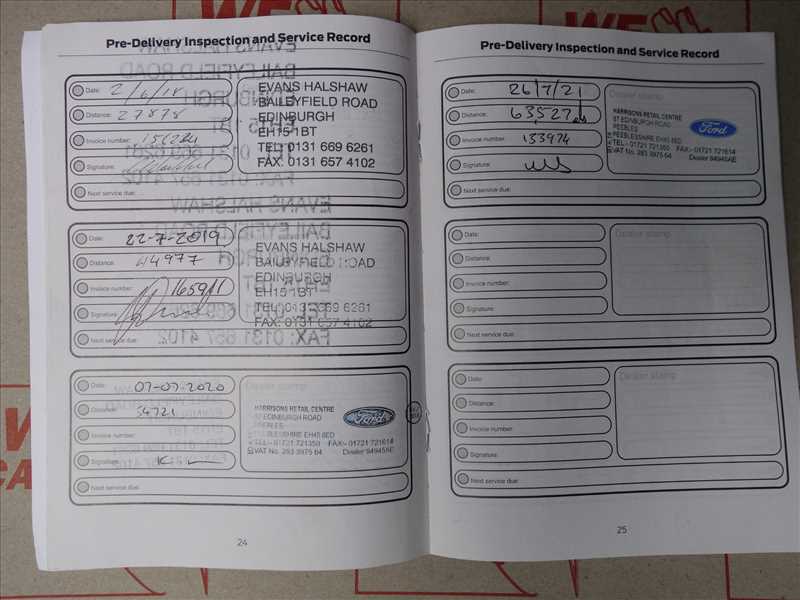 WE
Pre-Delivery Inspection and Service Record
Date: 2/6/18
Distance: 27878
Invoice number:
Signature:
Next service due:
EVANS HALSHAW
BAILEYFIELD ROAD
EDINBURGH
EH15 1BT
TEL: 0131 669 6261
FAX: 0131 657 4102
Date: 22-7-2019
Distance: 44977
Invoice number:
Signature:
Next service due:
EVANS HALSHAW
BAILEYFIELD ROAD
EDINBURGH
EH15 1BT
TEL: 0131 669 6261
FAX: 0131 657 4102
Date: 07-07-2020
Distance: 54721
Invoice number:
Signature:
Next service due:
Dealer stamp
HARRISONS RETAIL CENTRE
87 EDINBURGH ROAD
PEEBLES
PEEBLESSHIRE EH45 8ED
TEL:- 01721 721350 FAX:- 01721 721614
VAT No. 283 3975 64 Dealer 94945AE
Ford
24
WE
Pre-Delivery Inspection and Service Record
Date: 26/7/21
Distance: 63527
Invoice number: 133974
Signature:
Next service due:
Dealer stamp
HARRISONS RETAIL CENTRE
87 EDINBURGH ROAD
PEEBLES
PEEBLESSHIRE EH45 8ED
TEL:- 01721 721350 FAX:- 01721 721614
VAT No. 283 3975 64 Dealer 94945AE
Ford
Date:
Distance:
Invoice number:
Signature:
Next service due:
Dealer stamp
Date:
Distance:
Invoice number:
Signature:
Next service due:
Dealer stamp
25